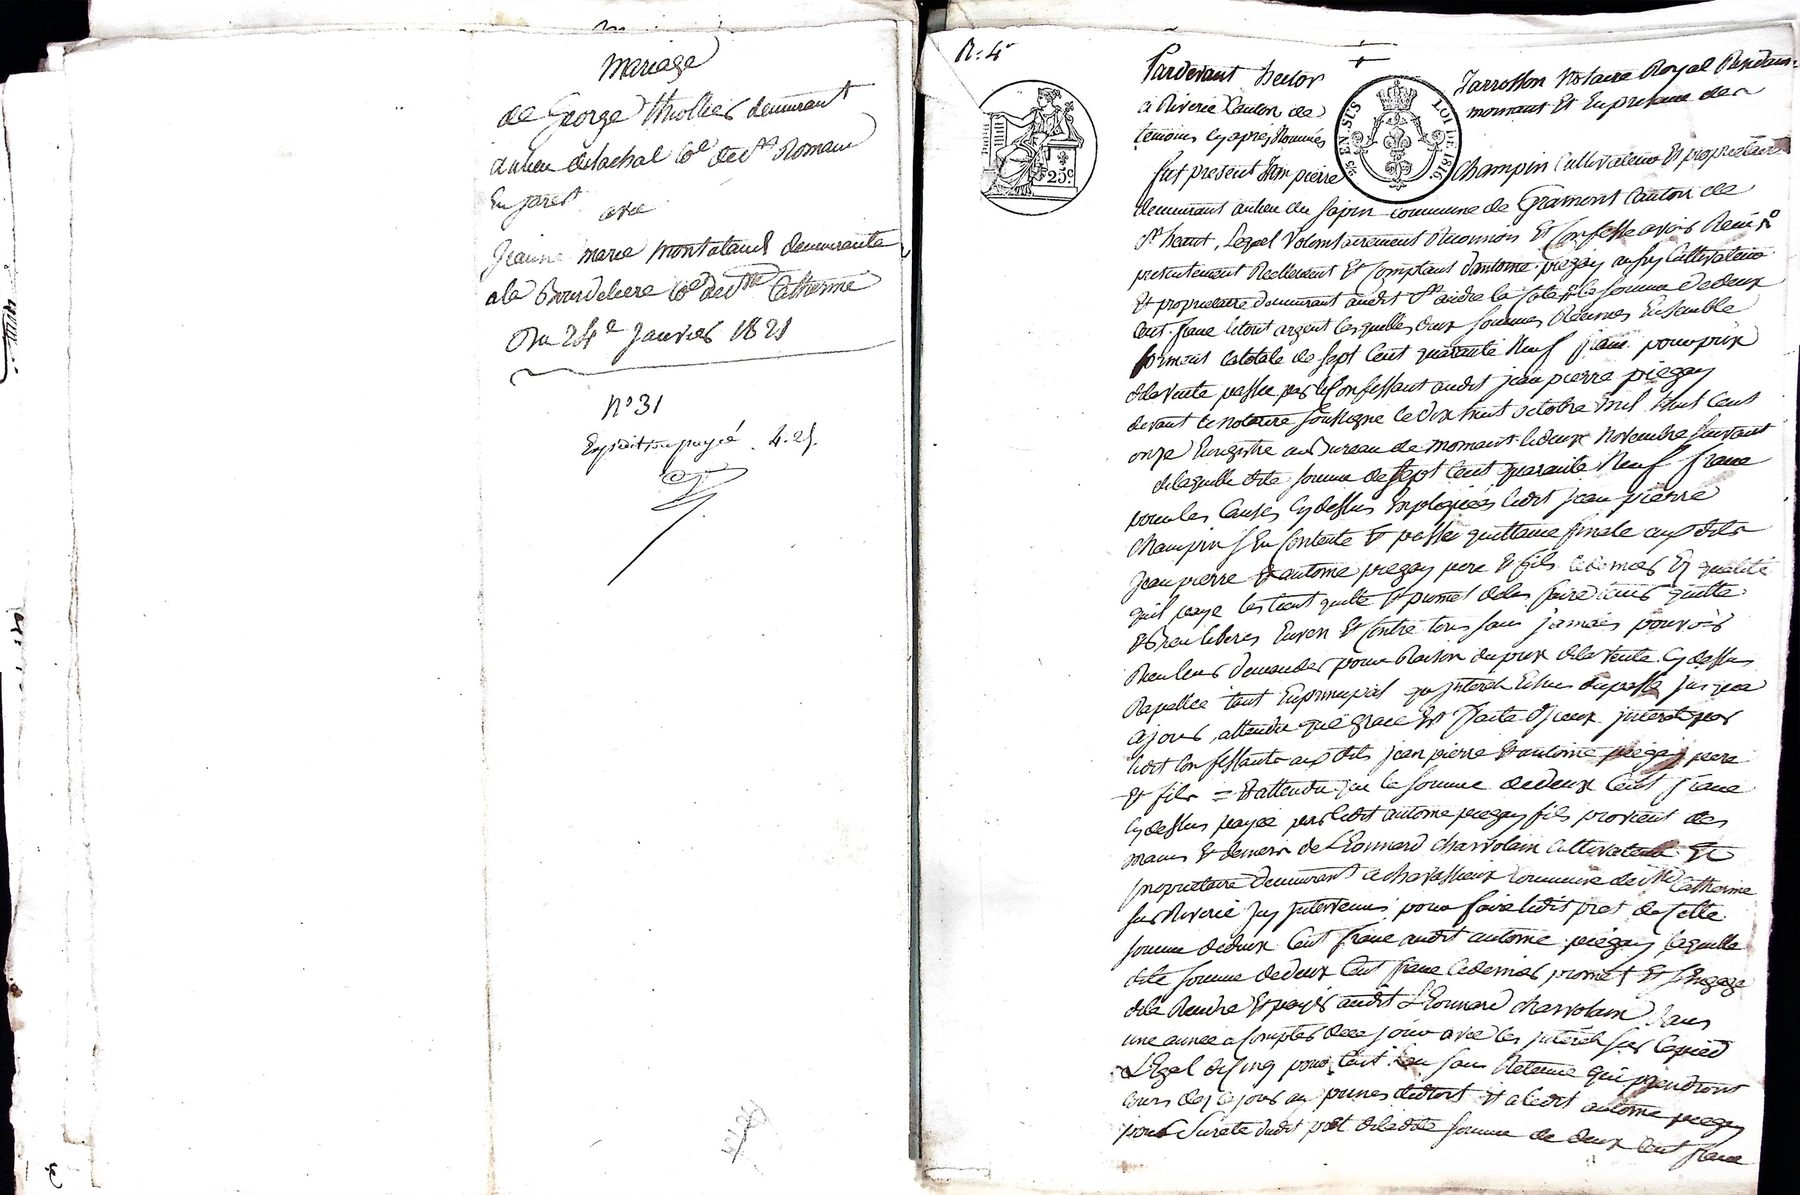 Mariage
de George thollier demeurant
au lieu delachal Coe de St Romain
En jarest
avec
Jeanne marie montaland demeurante
a la Bourdeliere Coe de Ste Catherine
Du 24e Janvier 1821
N° 31
Expedition payé . 4.25.
N: 4
25 EN SUS LOI DE 1816
25c
Pardevant hector Jarrosson Notaire Royal Residant
a Riverie Canton de mornant Et En presence des
temoins cy apres Nommés
fut present Jean pierre Champin Cultivateur Et proprietaire
demeurant au lieu du sapin commune de Gramont Canton de
St heant, Lequel Volontairement Reconnoit Et Confesse avoir Reçu
presentement Reellement Et Comptant d'antoine piegay aussy Cultivateur
Et proprietaire demeurant audit St andré la cote la somme de deux
Cent franc letout argent lesquelles deux sommes Réunies Ensemble
forment la totale de sept Cent quarante Neuf franc pour prix
dela vente passée par le Confessant audit jean pierre piegay
devant le Notaire soussigné le dix huit octobre mil huit Cent
onze Enregistré au Bureau de mornant le deux Novembre suivant
de laquelle dite somme de sept Cent quarante Neuf franc
pour les Causes cy dessus Expliquées ledit jean pierre
Champin s'En Contente Et passe quittance finale auxdits
Jean pierre Et antoine piegay pere Et fils le dernier En qualité
quil paye les tient quitte Et promet de les faire tenir quitte
Et Bien liberes Envers Et Contre tous sans jamais pouvoir
Rien leur demander pour Raison du prix dela vente cy dessus
Rapellée tant En principal qu'jnterêt Echus du passé jusqua
a jour, attendu que grace Est faite d'jceux jnterêt par
ledit Confessant auxdits jean pierre Et antoine piegay pere
Et fils = Et attendu que la somme de deux Cent franc
cy dessus payée par ledit antoine piegay fils provient des
mains Et deniers de Léonnard charvolain Cultivateur Et
proprietaire demeurant a chavassieux Commune de Ste Catherine
sur Riverie jcy jntervenu pour faire ledit pret de Cette
somme de deux Cent franc audit antoine piégay, laquelle
dite somme de deux Cent franc le dernier promet Et s'Engage
dela Rendre Et payer audit Léonnard charvolain dans
une année a Compter de ce jour avec les jnterêt sur le pied
L'Egal de Cinq pour Cent l'an sans Retenue qui prendront
Cours dez ce jour au prines dudroit Et a ledit antoine piegay
pour Sureté dudit prêt dela dite somme de deux Cent franc